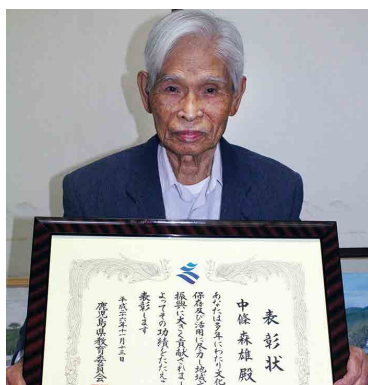 表彰状
中條森雄殿
あなたは多年にわたり文化
保存及び活用に尽力し地域
振興に大きく貢献されまし
よってその功績をたたえこ
表彰します
平成二六年十一月十三日
鹿児島県教育委員会